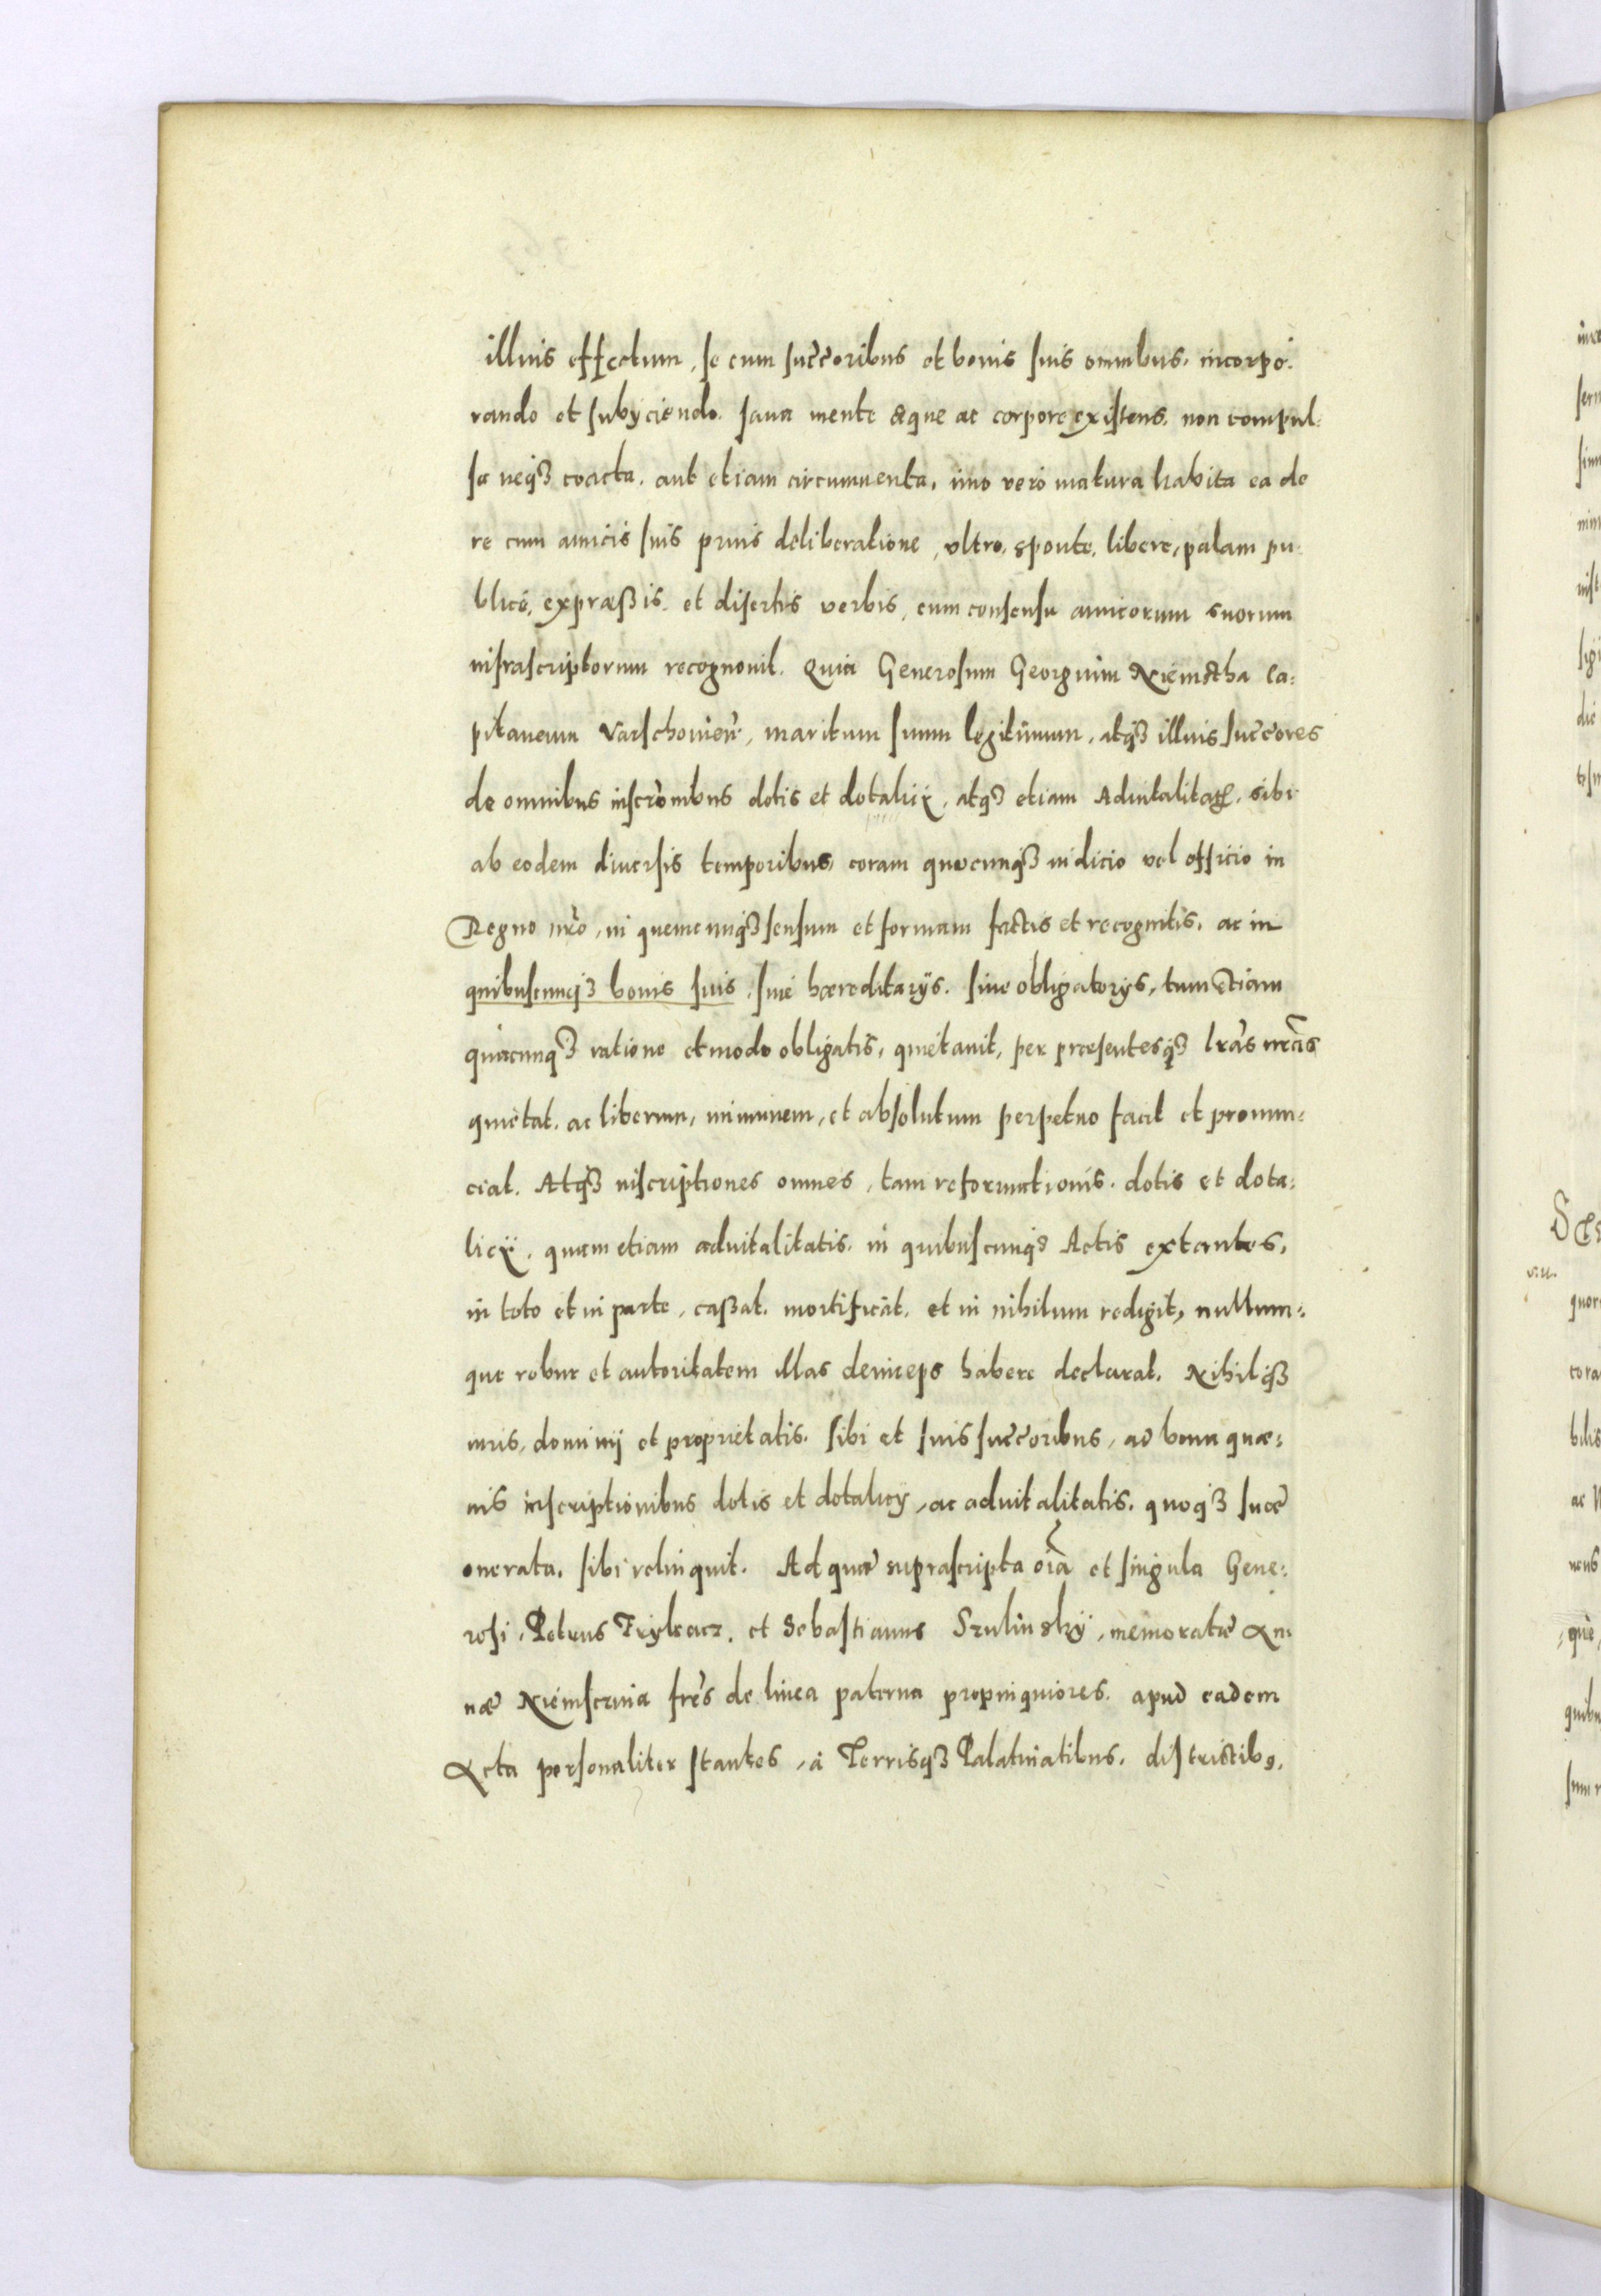 illius effectum, se cum succ̃oribus et bonis suis omnibus, incorpo:
rando et subyciendo, sana mente æque ac corpore existens, non compul:
sa neqꝫ coacta, aut etiam circumuenta, imo vero matura habita ea de
re cum amicis suis prius deliberatione, vltro, sponte, libere, palam pu:
blice, expræßis et disertis verbis, cum consensu amicorum suorum
infrascriptorum recognouit. Quia Generosum Georgium Niemstha Ca:
pitaneum Varschouien̄, maritum suum legitimum, atqꝫ illius succ̃ores
de omnibus inscr̃onibus dotis et dotalicÿ, atqꝫ etiam Aduitalitat̃, sibi
ab eodem diuersis temporibus, coram quocunqꝫ iudicio vel officio in
Regno nr̃o, in quemcunqꝫ sensum et formam factis et recognitis, ac in
quibuscunqꝫ bonis suis, siue hæreditarÿs, siue obligatorÿs, tum etiam
quacunqꝫ ratione et modo obligatis, quietauit, per præsentesqꝫ lr̃as nr̃as
quietat, ac liberum, immunem, et absolutum perpetuo facit et pronun:
ciat. Atqꝫ inscriptiones omnes, tam reformationis, dotis et dota:
licÿ, quam etiam aduitalitatis, in quibuscunqꝫ Actis extantes,
in toto et in parte, caßat, mortificat, et in nihilum redigit, nullum:
que robur et autoritatem illas deinceps habere declarat. Nihilqꝫ
iuris, dominÿ et proprietatis, sibi et suis succ̃oribus, ad bona quæ:
uis inscriptionibus dotis et dotalicÿ, ac aduitalitatis, quoqꝫ suæ
onerata, sibi relinquit. Ad quæ suprascripta oĩa et singula Gene:
rosi, Petrus Trylracz, et Sebastianus Szulinskÿ, memoratæ An:
næ Niemscrinia fr̃es de linea paterna propinquiores, apud eadem
Acta personaliter stantes, à Terrisqꝫ Palatinatibus, districtibꝰ,